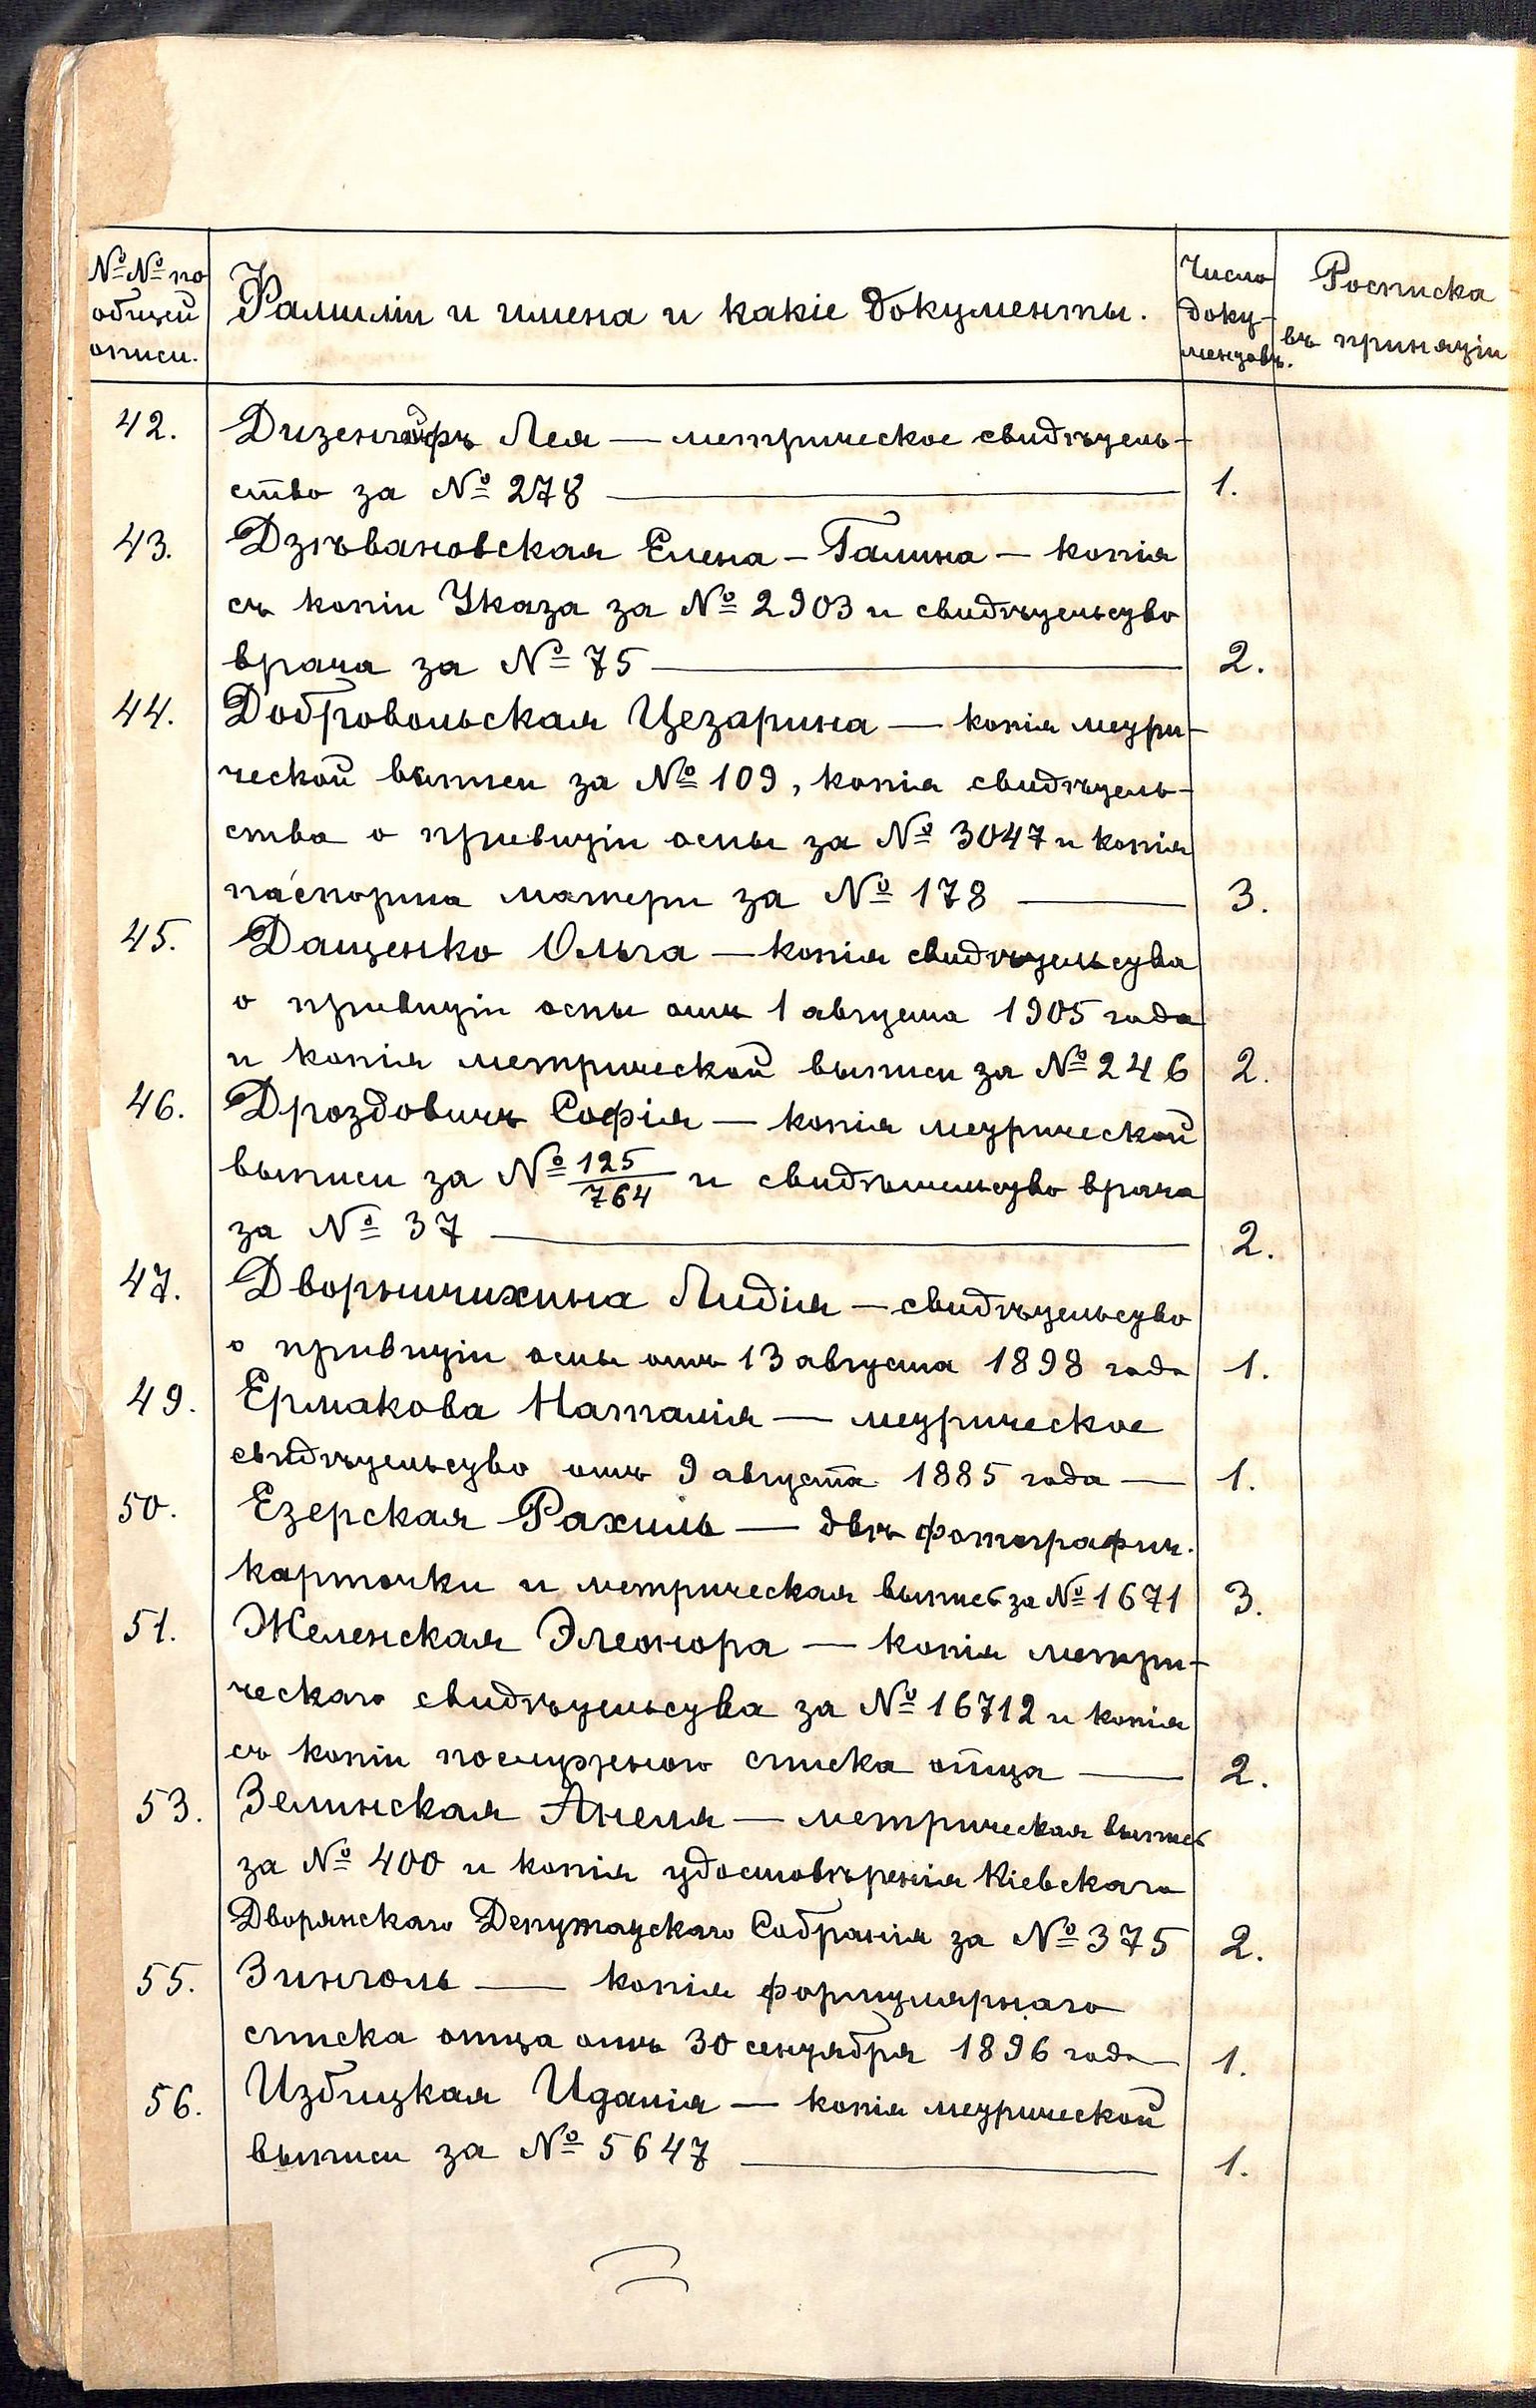 №№ по
общей
описи.
Фамиліи и имена и какіе документы.
Число
доку-
ментовъ.
Росписка
въ принятіи
42. Дизенгофъ Лея — метрическое свидѣтель-
ство за № 278 — 1.
43. Дзѣвановская Елена-Галина — копія
съ копіи Указа за № 2903 и свидѣтельство
врача за № 75 — 2.
44. Добровольская Цезарина — копія метри-
ческой выписи за № 109, копія свидѣтель-
ства о привитіи оспы за № 3047 и копія
паспорта матери за № 178 — 3.
45. Дащенко Ольга — копія свидѣтельства
о привитіи оспы отъ 1 августа 1905 года
и копія метрической выписи за № 246 2.
46. Дроздовичъ Софія — копія метрической
выписи за № 125/764 и свидѣтельство врача
за № 37 — 2.
47. Дворычихина Лидія — свидѣтельство
о привитіи оспы отъ 13 августа 1898 года 1.
49. Ермакова Наталія — метрическое
свидѣтельство отъ 9 августа 1885 года — 1.
50. Езерская Рахиль — двѣ фотографич.
карточки и метрическая выпись за № 1671 3.
51. Желенская Элеонора — копія метри-
ческаго свидѣтельства за № 16712 и копія
съ копіи послужного списка отца — 2.
53. Зелинская Анеля — метрическая выпись
за № 400 и копія удостовѣренія Кіевскаго
Дворянскаго Депутатскаго Собранія за № 375 2.
55. Зинголь — копія формулярнаго
списка отца отъ 30 сентября 1896 года — 1.
56. Избицкая Идалія — копія метрической
выписи за № 5647 — 1.